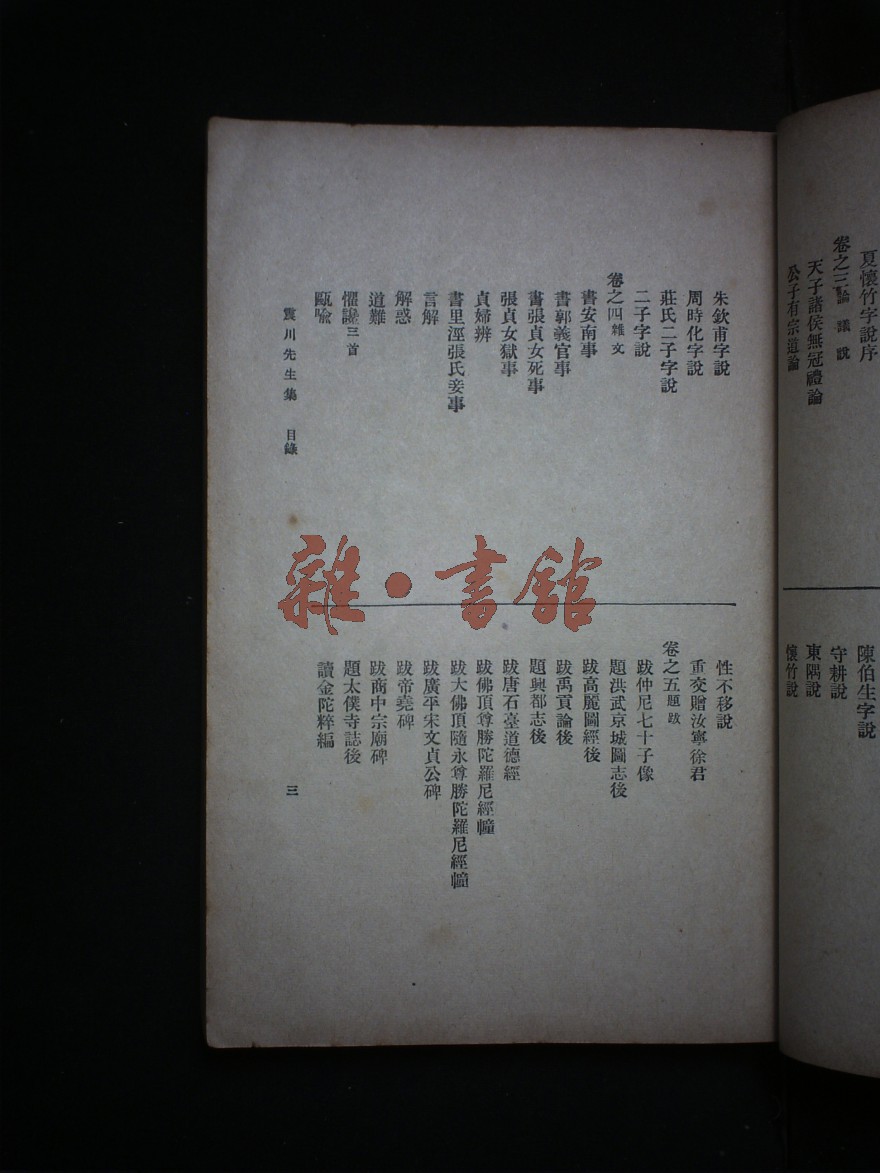 夏懷竹字說序
卷之三論 議 說
天子諸侯無冠禮論
公子有宗道論
陳伯生字說
守耕說
東隅說
懷竹說
朱欽甫字說
周時化字說
莊氏二子字說
二子字說
卷之四雜文
書安南事
書郭義官事
書張貞女死事
張貞女獄事
貞婦辨
書里涇張氏妾事
言解
解惑
道難
懼讒三首
甌喩
性不移說
重交贈汝寧徐君
卷之五題跋
跋仲尼七十子像
題洪武京城圖志後
跋高麗圖經後
跋禹貢論後
題興都志後
跋唐石臺道德經
跋佛頂尊勝陀羅尼經幢
跋大佛頂隨永尊勝陀羅尼經幢
跋廣平宋文貞公碑
跋帝堯碑
跋商中宗廟碑
題太僕寺誌後
讀金陀粹編
震川先生集 目錄
三
雜·書館